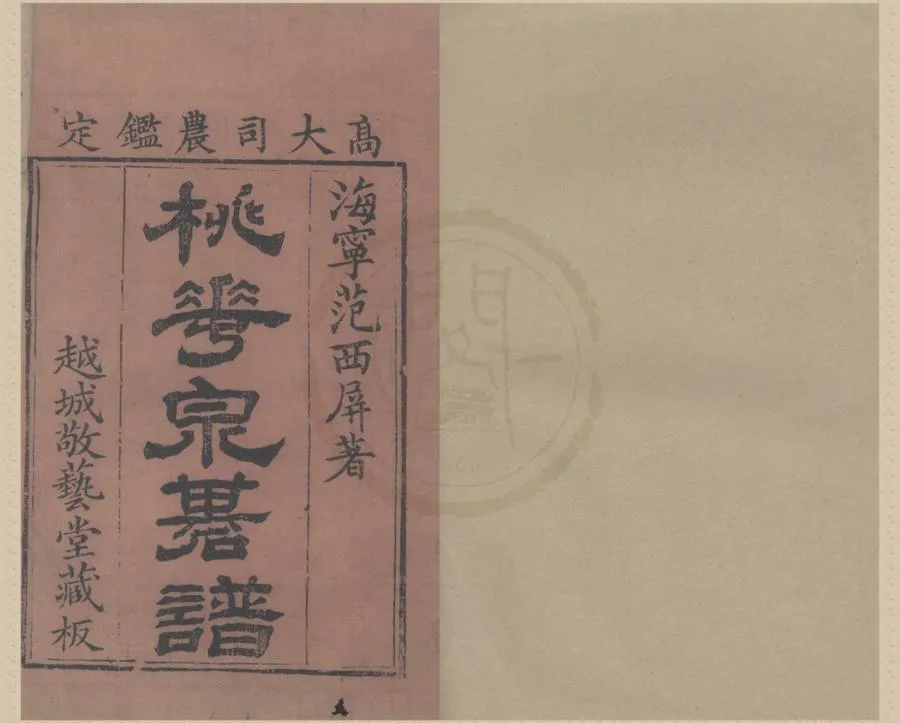 高大司農鑑定
海寧范西屏著
桃華泉碁譜
越城敬藝堂藏板